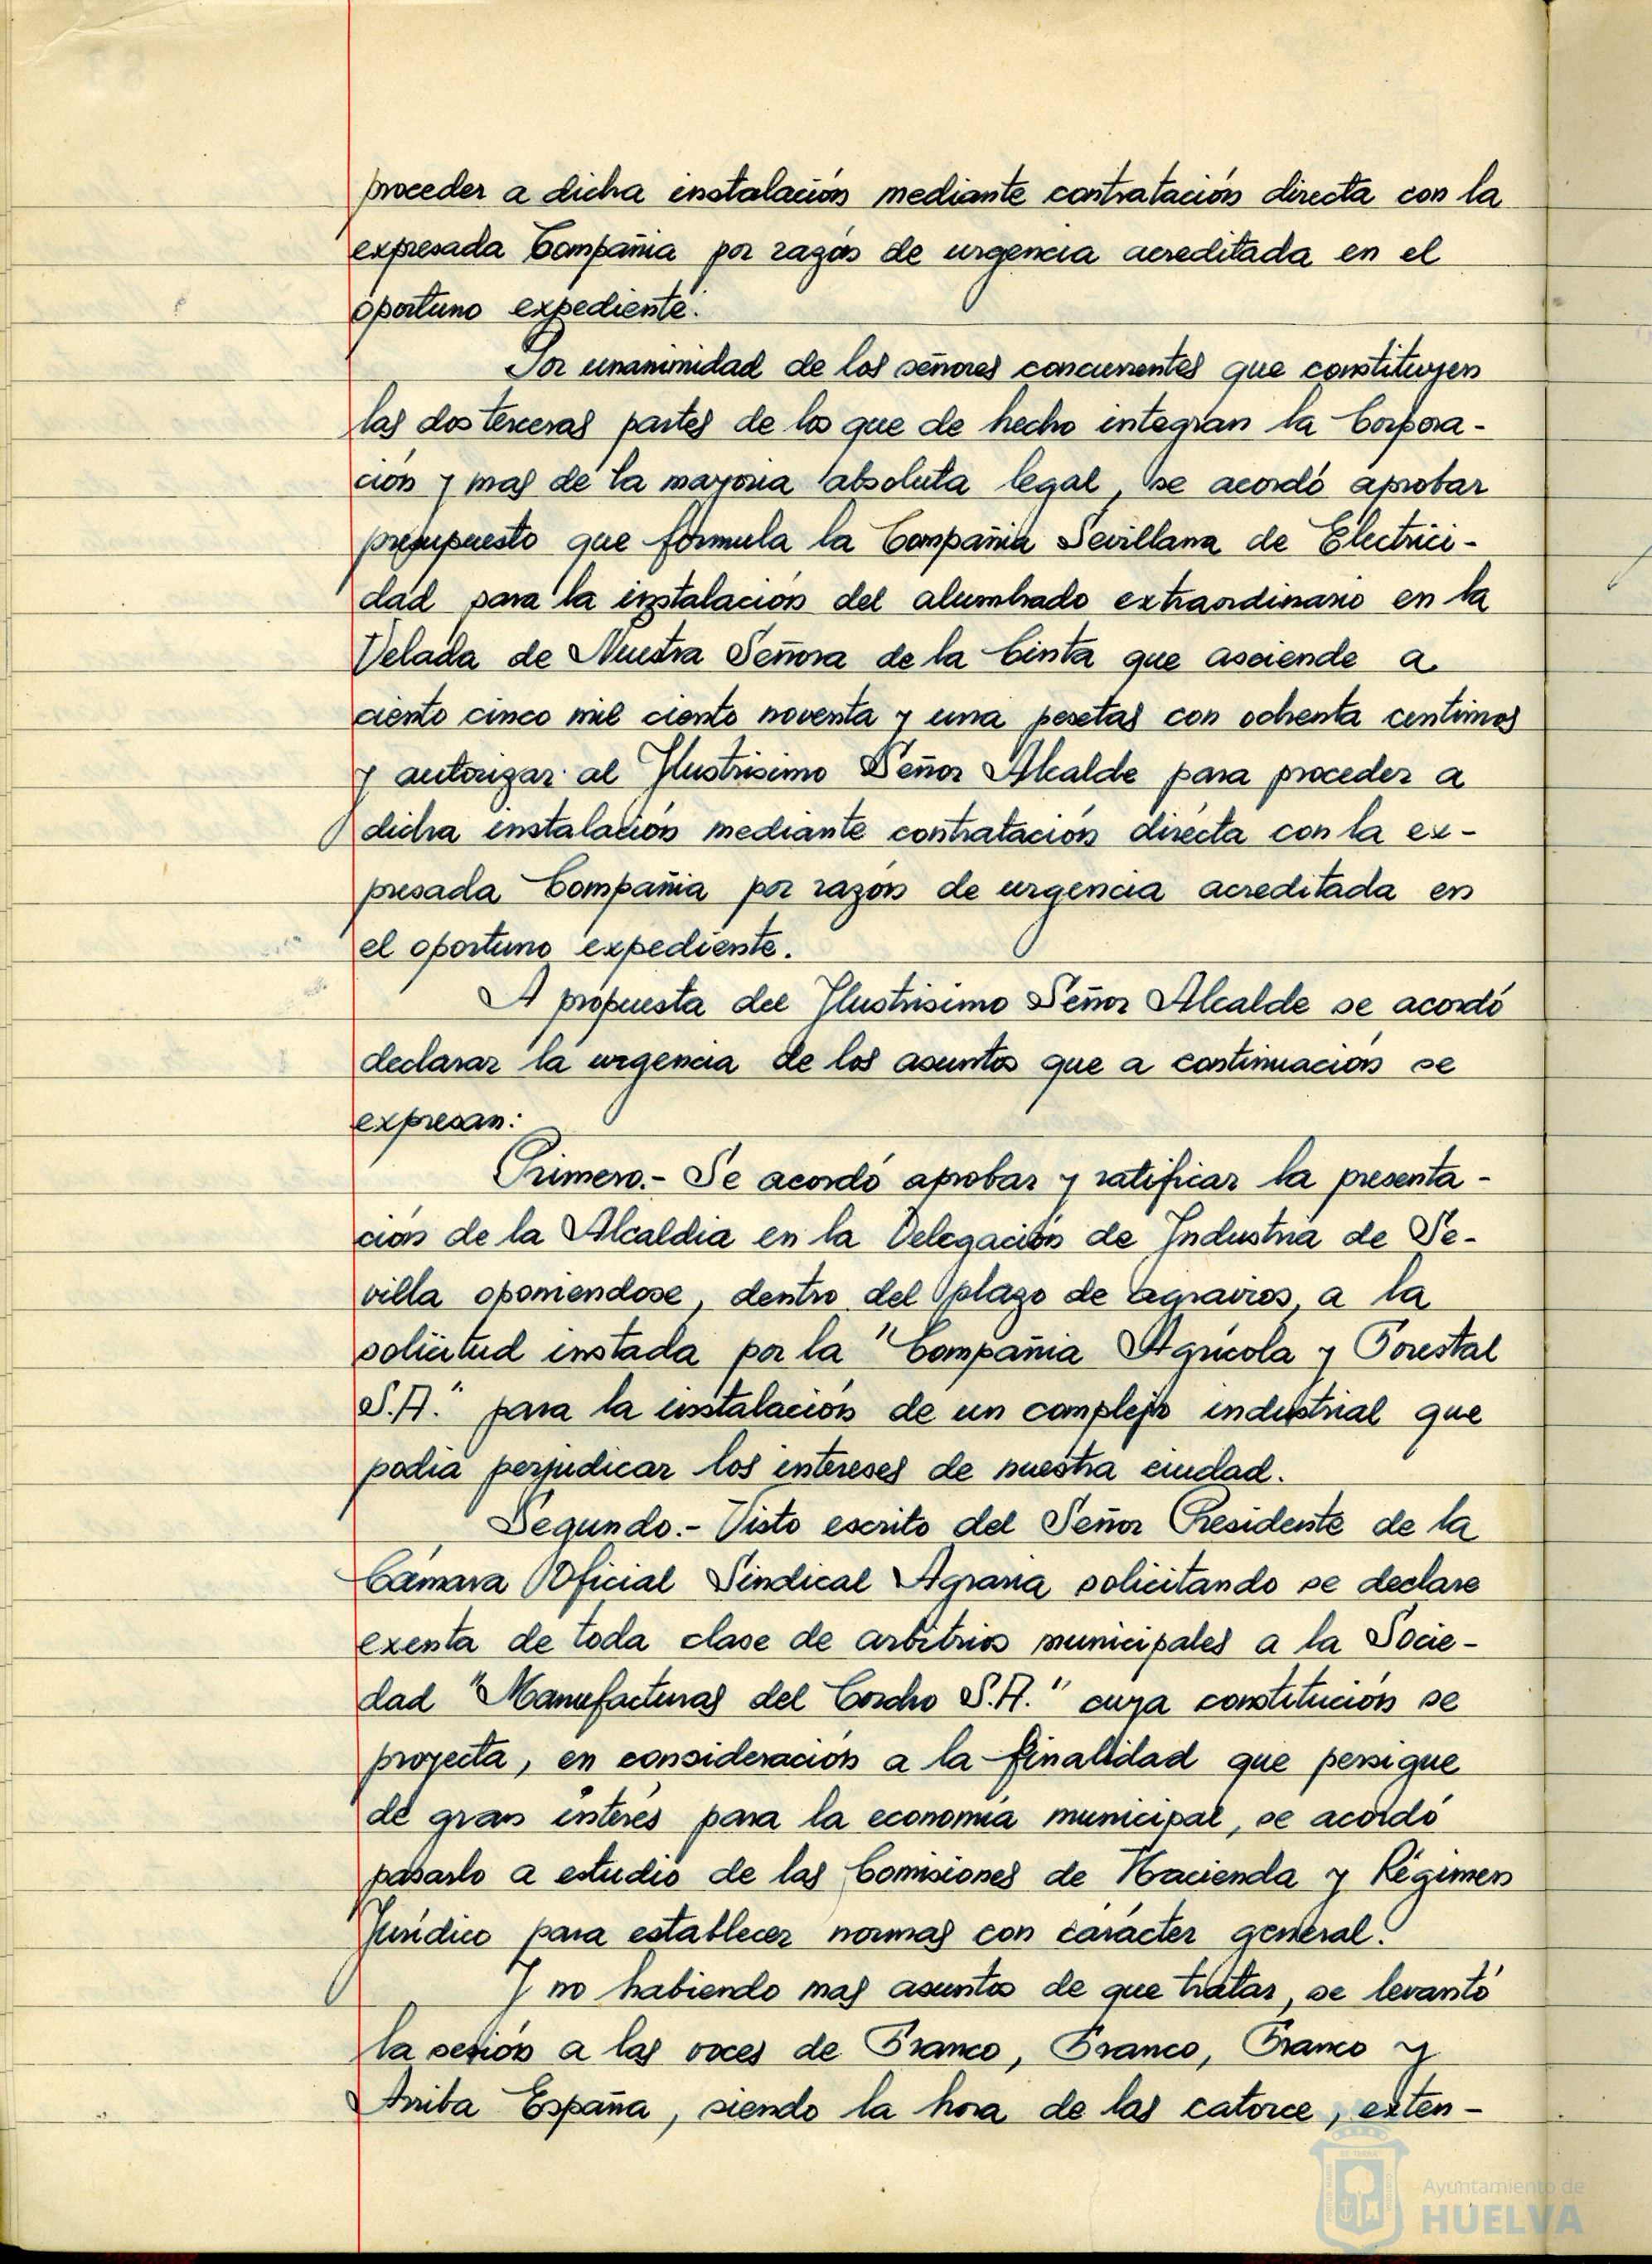 proceder a dicha instalación mediante contratación directa con la
expresada Compañia por razón de urgencia acreditada en el
oportuno expediente.
Por unanimidad de los señores concurrentes que constituyen
las dos terceras partes de los que de hecho integran la Corpora-
ción y mas de la mayoria absoluta legal, se acordó aprobar
presupuesto que formula la Compañia Sevillana de Electrici-
dad para la instalación del alumbrado extraordinario en la
Velada de Nuestra Señora de la Cinta que asciende a
ciento cinco mil ciento noventa y una pesetas con ochenta centimos
y autorizar al Ilustrisimo Señor Alcalde para proceder a
dicha instalación mediante contratación directa con la ex-
presada Compañia por razón de urgencia acreditada en
el oportuno expediente.
A propuesta del Ilustrisimo Señor Alcalde se acordó
declarar la urgencia de los asuntos que a continuación se
expresan:
Primero.- Se acordó aprobar y ratificar la presenta-
ción de la Alcaldia en la Delegación de Industria de Se-
villa oponiendose, dentro del plazo de agravios, a la
solicitud instada por la "Compañia Agricola y Forestal
S.A." para la instalación de un complejo industrial que
podia perjudicar los intereses de nuestra ciudad.
Segundo.- Visto escrito del Señor Presidente de la
Cámara Oficial Sindical Agraria solicitando se declare
exenta de toda clase de arbitrios municipales a la Socie-
dad "Manufacturas del Corcho S.A." cuya constitución se
proyecta, en consideración a la finalidad que persigue
de gran interés para la economia municipal, se acordó
pasarlo a estudio de las Comisiones de Hacienda y Régimen
Jurídico para establecer normas con carácter general.
Y no habiendo mas asuntos de que tratar, se levantó
la sesión a las voces de Franco, Franco, Franco y
Arriba España, siendo la hora de las catorce, exten-
Ayuntamiento de
HUELVA